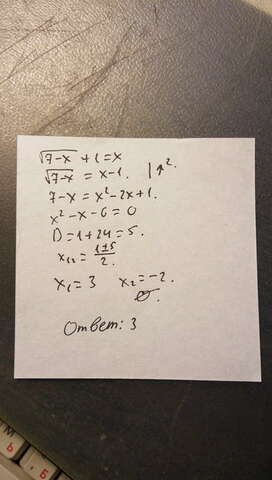 √7-x + 1 = x
√7-x = x-1. |↑².
7-x = x²-2x+1.
x²-x-6=0
D=1+24=5.
x₁,₂= (1±5)/2.
x₁=3 x₂=-2.
∅.
Ответ: 3
М
Ь
Б